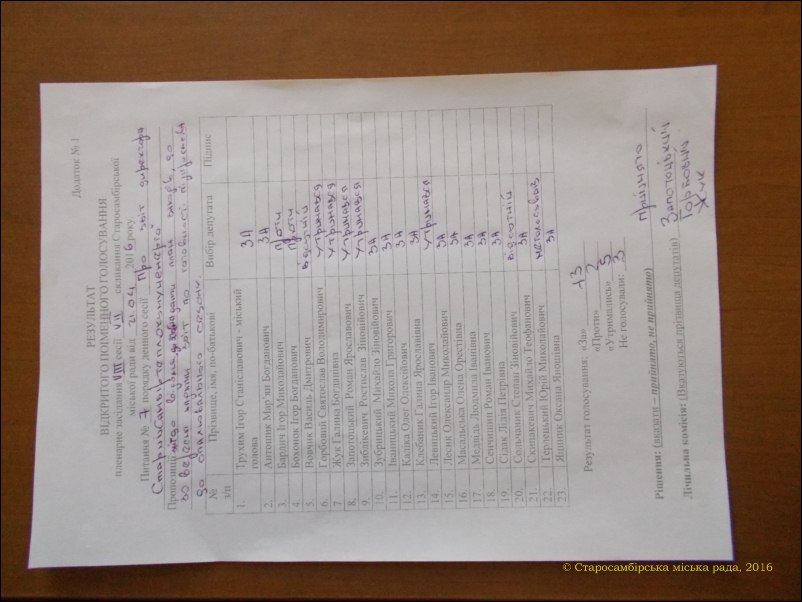 Додаток № 1
РЕЗУЛЬТАТ
ВІДКРИТОГО ПОІМЕННОГО ГОЛОСУВАННЯ
пленарне засідання VIII сесії VII скликання Старосамбірської
міської ради від 21.04. 2016 року.
Питання № 7 порядку денного сесії Про звіт директора
Старийсамбіртеплокомуненерго
Пропозиції
до вересня
до опалювального сезону.
№ з/п Прізвище, імя, по-батькові Вибір депутата Підпис
1. Трухим Ігор Станіславович - міський голова ЗА
2. Антонник Мар'ян Богданович ЗА
3. Бардин Ігор Миколайович проти
4. Бохонок Ігор Богданович проти
5. Вовчик Василь Дмитрович відсутній
6. Горбовий Святослав Володимирович утримався
7. Жук Галина Богданівна утримався
8. Запотоцький Роман Ярославович утримався
9. Зубайкевич Ростислав Зіновійович утримався
10. Зубрецький Михайло Зіновійович ЗА
11. Іваницький Микола Григорович ЗА
12. Каліка Олег Олексійович ЗА
13. Клебаник Галина Ярославівна ЗА
14. Левицький Ігор Іванович утримався
15. Лесик Олександр Миколайович ЗА
16. Масальська Олена Орестівна ЗА
17. Медвідь Людмила Іванівна ЗА
18. Сенчишин Роман Іванович ЗА
19. Сипак Лідія Петрівна ЗА
20. Сольчаник Степан Зіновійович відсутній
21. Скрипкевич Михайло Теофанович ЗА
22. Терлецький Юрій Миколайович не голосував
23. Ящиник Оксана Яношівна ЗА
Результат голосування: «За» 13
«Проти» 2
«Утримались» 5
Не голосували: 3
Рішення: (вказати – прийнято, не прийнято) прийнято
Лічильна комісія: (Вказуються прізвища депутатів) Запотоцький
Горбовий
Жук
© Старосамбірська міська рада, 2016